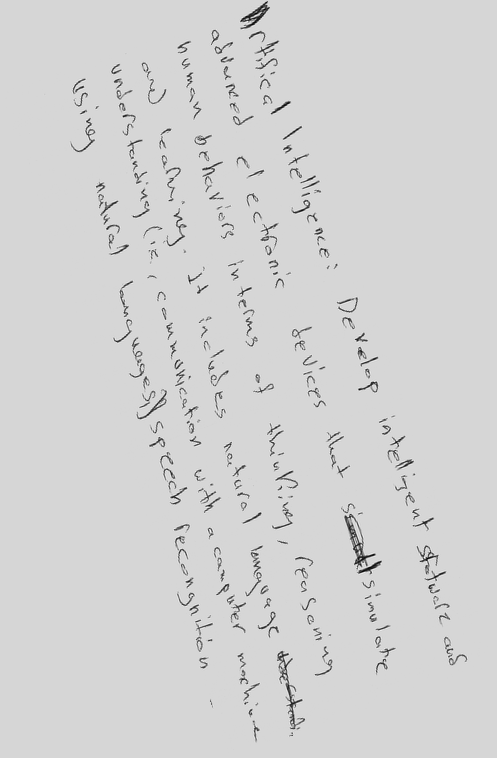 Artifical Intelligence: Develop intelligent and
advanced electronic devices that simulate
human behaviors interms of thinking, reasoning
and learning. It includes natural language
understanding (i.e., communication with a computer machine
using natural languages), speech recongnition -